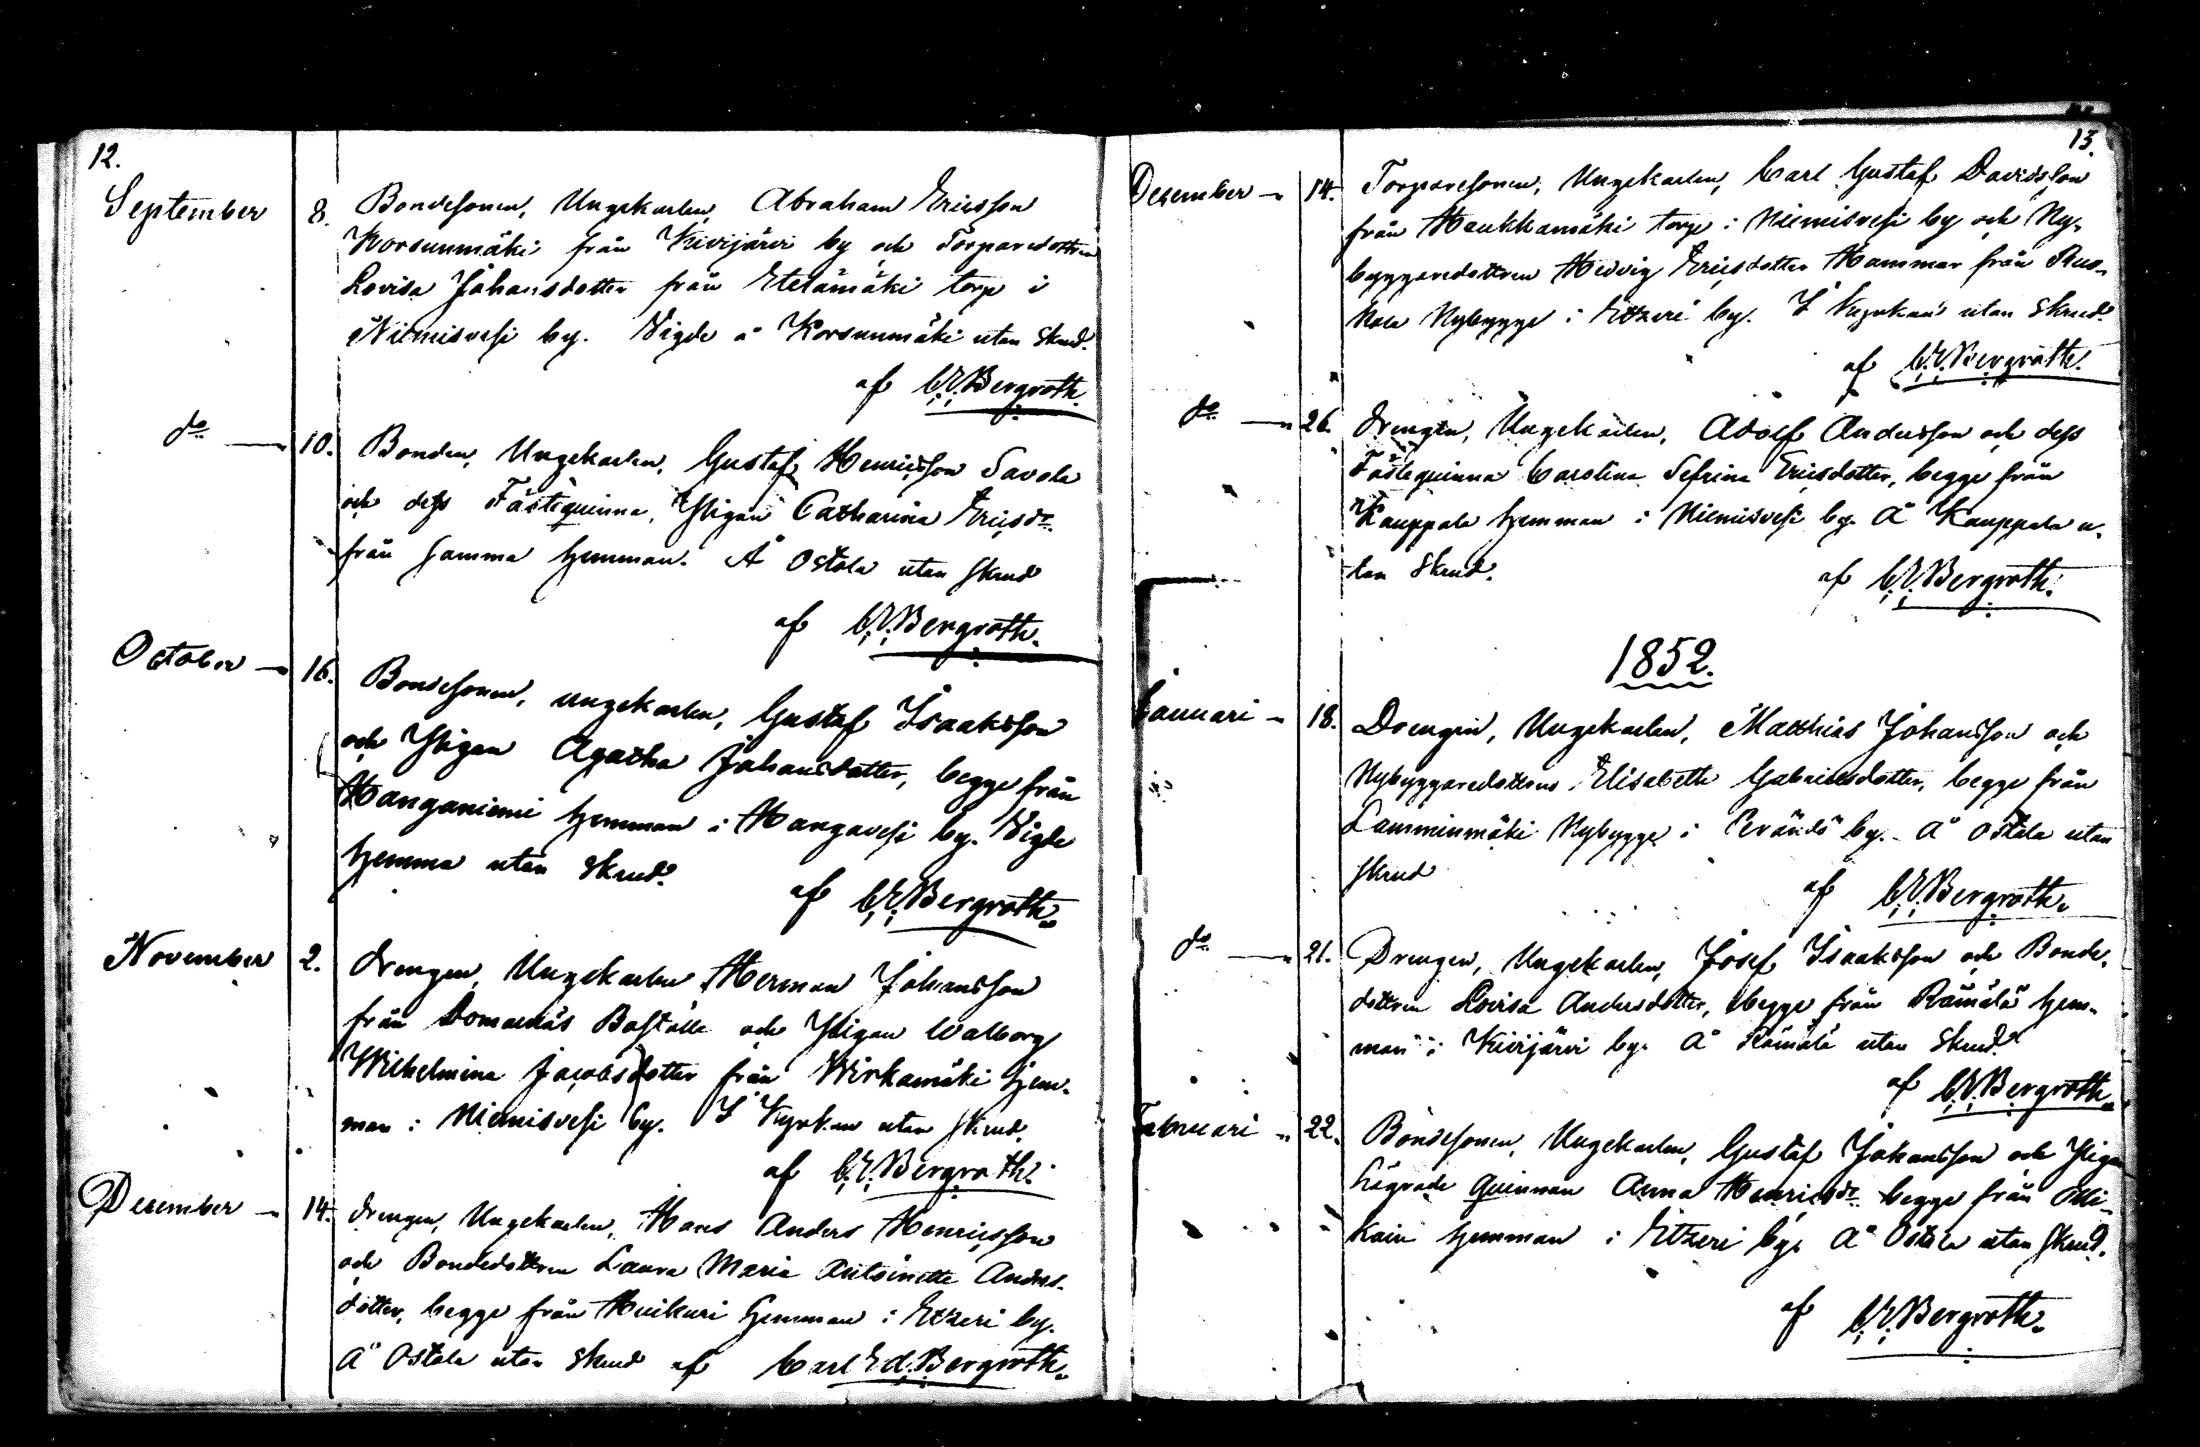 12.
September 8. Bondesonen, Ungekarlen, Abraham Ericsson
Korsunmäki från Kivijärvi by och Torparedottren
Lovisa Johansdotter från Etelämäki torp i
Niemisvesi by. Vigde å Korsunmäki utan skrud.
af C. E. Bergroth.
do 10. Bonden, Ungekarlen, Gustaf Henricsson Savola
och dess Fästeqvinna, Pigan Catharina Ericsdr.
från samma hemman. Å Ostola utan skrud
af C. E. Bergroth.
October 16. Bondesonen, ungekarlen, Gustaf Isaaksson
och Pigan Agatha Johansdotter, begge från
Hanganiemi hemman i Hangavesi by. Vigde
hemma utan skrud.
af C. E. Bergroth.
November 2. Drengen, Ungekarlen Herman Johansson
från Domarnäs Boställe och Pigan Walborg
Wilhelmina Jacobsdotter från Wirkamäki hem-
man i Niemisvesi by. I Kyrkan utan skrud.
af C. E. Bergroth.
December 14. Drengen, Ungekarlen, Hans Anders Henricsson
och Bondedottren Laura Maria Antoinette Anders-
dotter, begge från Huikuri hemman i Etzeri by.
Å Ostola utan skrud af Carl Ed. Bergroth.
13.
December 14. Torparesonen, Ungekarlen, Carl Gustaf Davidsson
från Haukkamäki torp i Niemisvesi by och Ny-
byggaredottren Hedvig Ericsdotter Hammar från
Nybygge i Etzeri by. I Kyrkan utan skrud.
af C. E. Bergroth.
do 26. Drengen, Ungekarlen, Adolf Andersson och dess
Fästeqvinna Carolina Sefrina Ericsdotter, begge från
Kauppala hemman i Niemisvesi by. Å Kauppala u-
tan skrud.
af C. E. Bergroth.
1852.
Januari 18. Drengen, Ungekarlen, Matthias Johansson och
Nybyggaredottren Elisabeth Gabrielsdotter, begge från
Lamminmäki Nybygge i Peränds by. Å Ostola utan
skrud
af C. E. Bergroth.
do 21. Drengen, Ungekarlen, Josef Isaaksson och Bonde-
dottren Lovisa Andersdotter, begge från Rämälä hem-
man i Kivijärvi by. Å Rämälä utan skrud.
af C. E. Bergroth.
Februari 22. Bondesonen, Ungekarlen, Gustaf Johansson och Pigan
Lägrade Qvinnan Anna Henricsdr. begge från Olli-
kain hemman i Etzeri by. Å Ostola utan skrud.
af C. E. Bergroth.